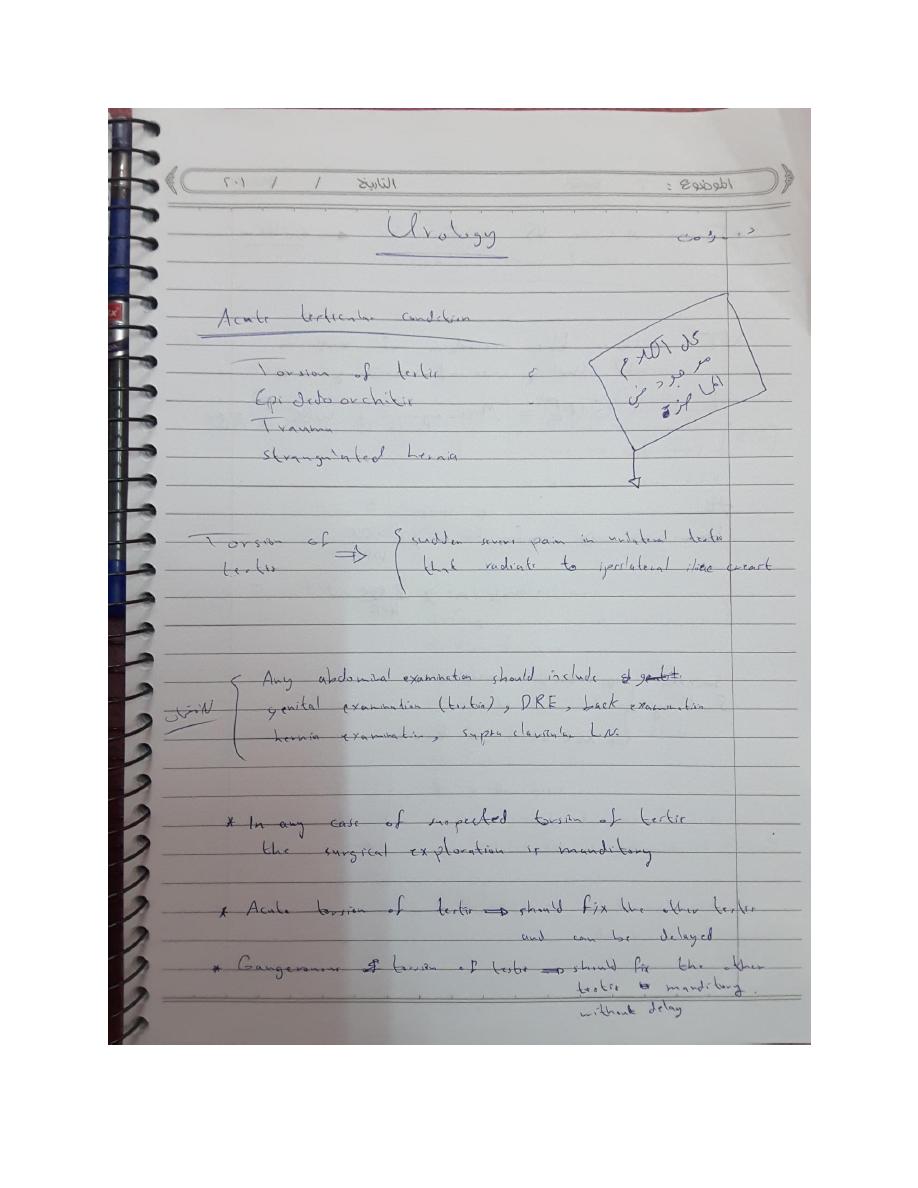 الموضوع :
التاريخ / / ٢٠١
Urology
د.
Acute testicular condition
كل الكلام
موجود في
المحاضرة
Torsion of testis
Epidedo orchitis
Trauma
strangulated hernia
Torsion of testis ⇒ sudden severe pain in unilateral testis
that radiate to ipsilateral iliac creast
Any abdominal examination should include
genital examination (testis), DRE, back examination
hernia examination, supra clavicular LN.
* In any case of suspected torsion of testis
the surgical exploration is manditory
* Acute torsion of testis ⇒ should fix the other testis
and can be delayed
* Gangerenous torsion of testis ⇒ should fix the other
testis manditory.
without delay